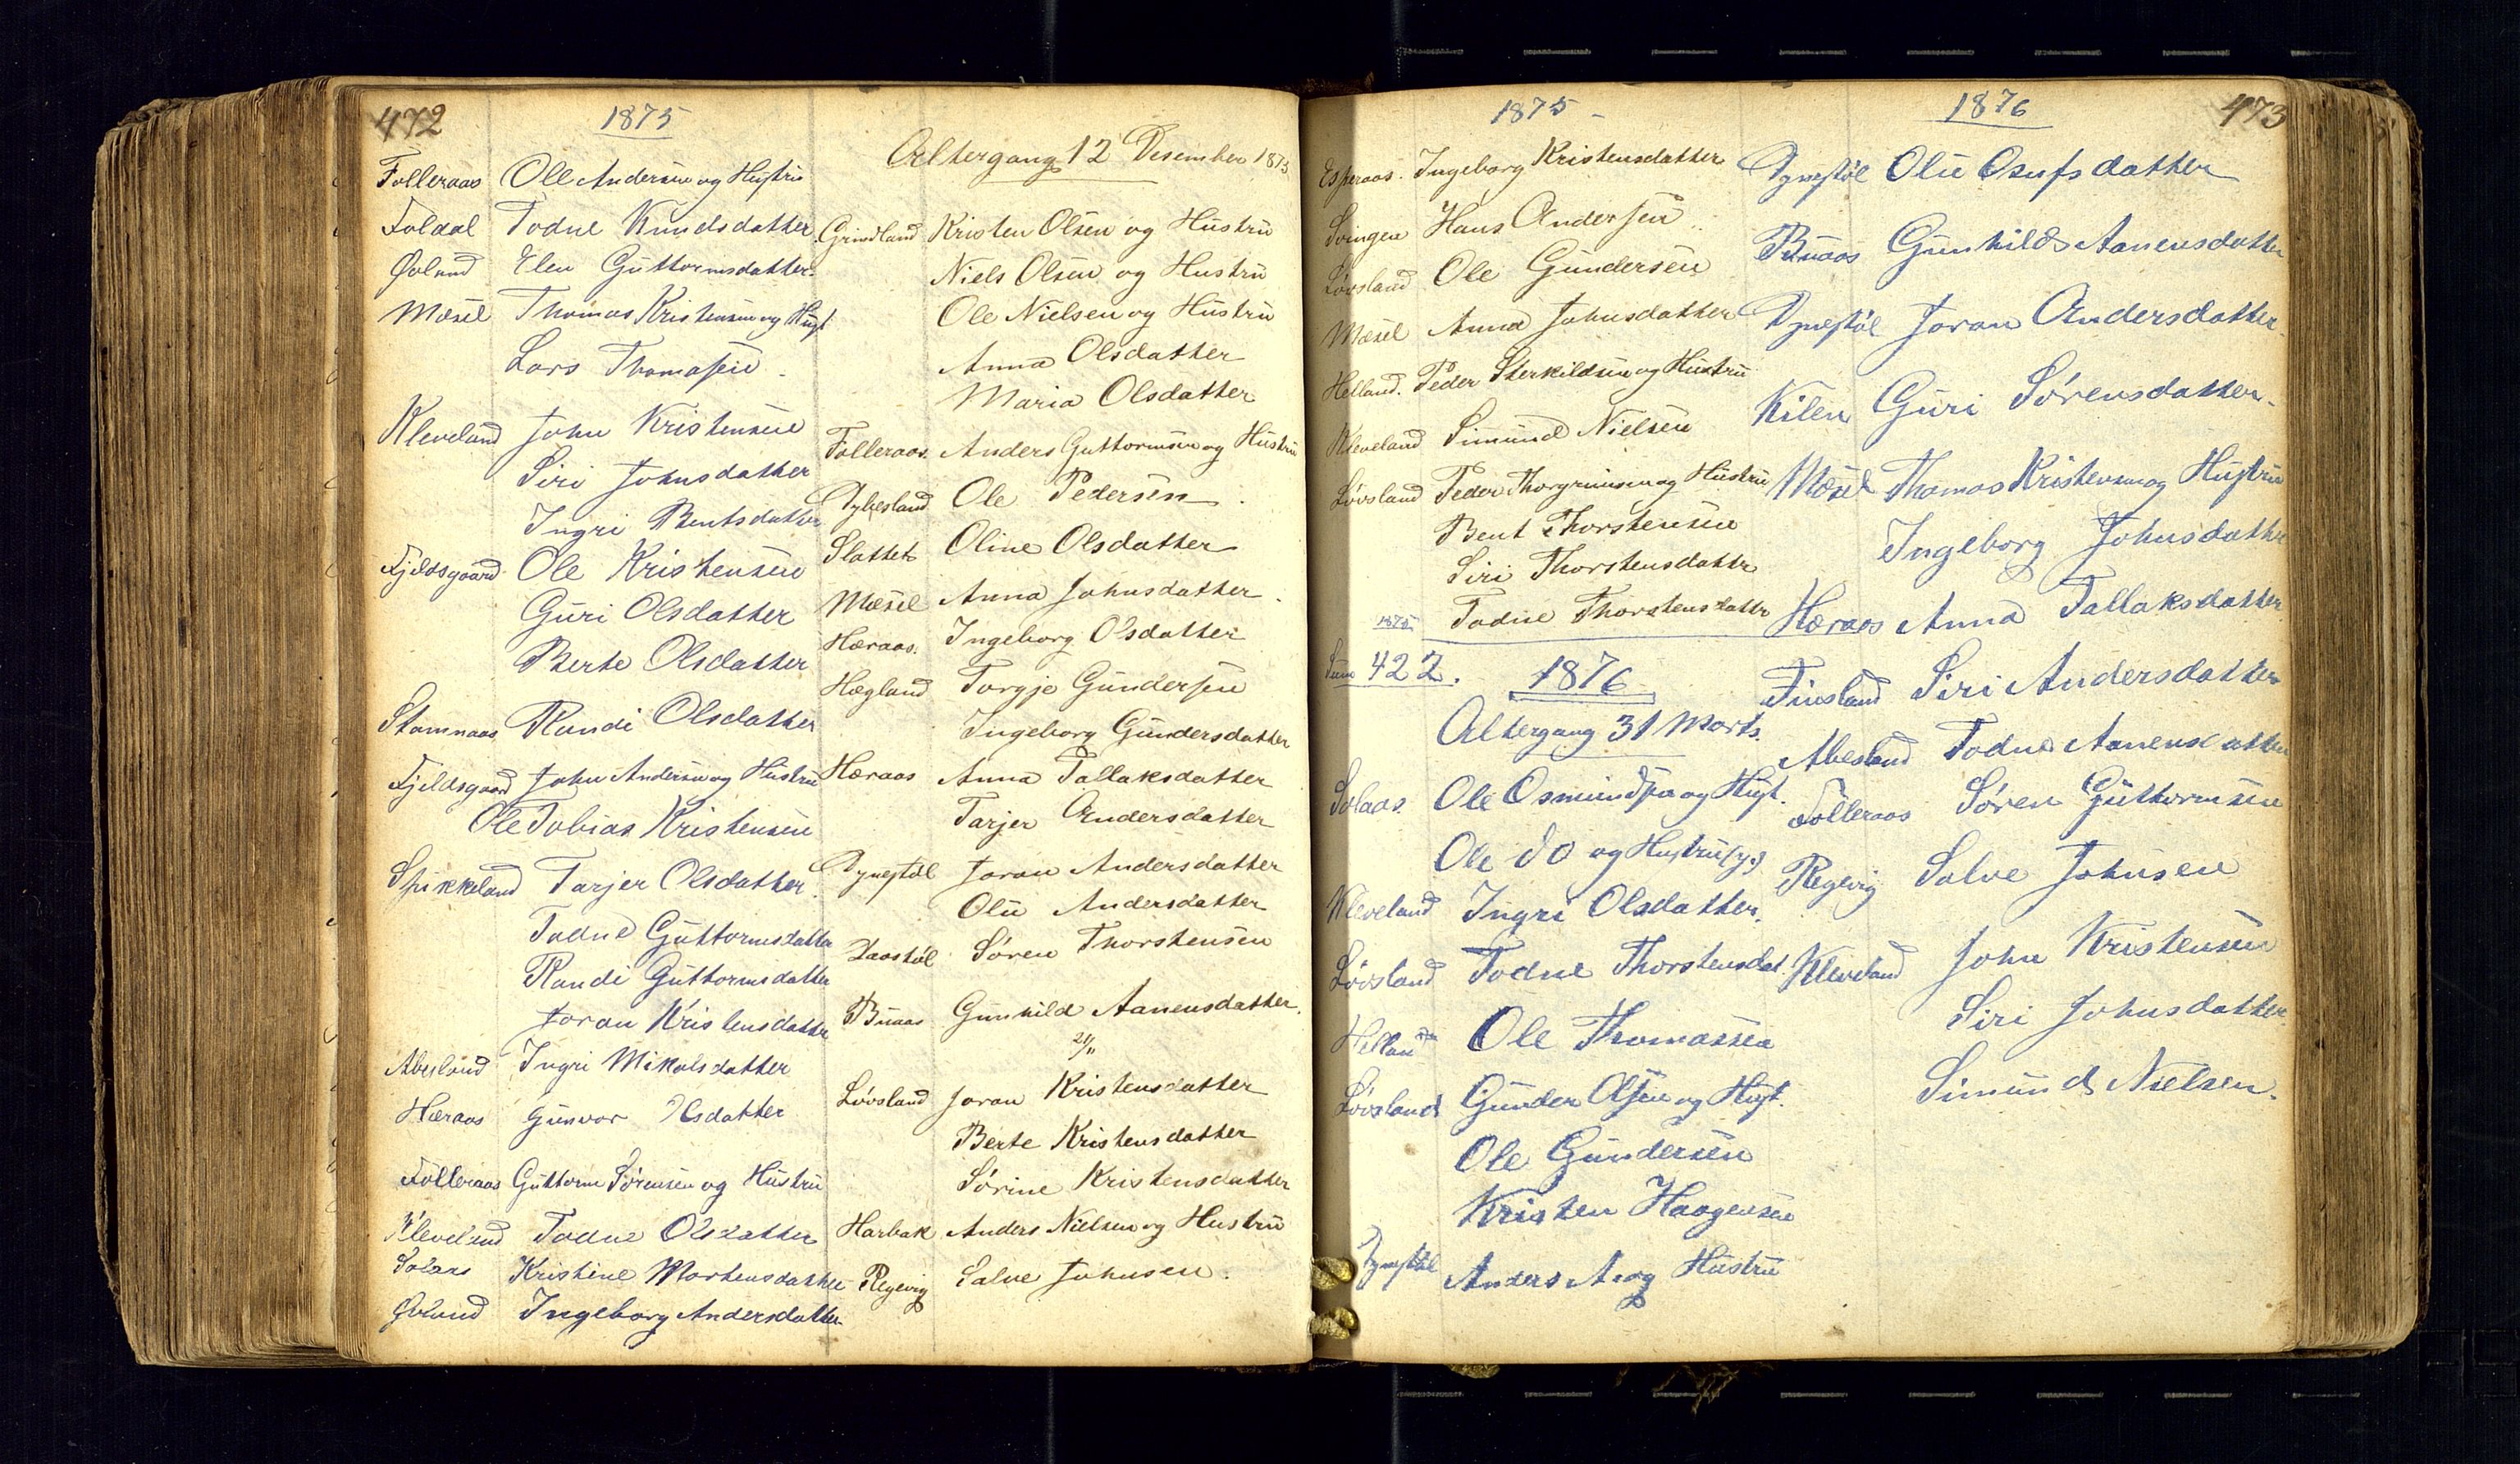 472
1875
Folleraas Ole Andersen og Hustru
Foldal Todne Knudsdatter
Øvland Elen Guttormsdatter
Mæsel Thomas Kristensen og Hust
Lars Thomasen
Kleveland John Kristensen
Siri Johnsdatter
Ingri Bentsdatter
Fjeldsgaard Ole Kristensen
Guri Olsdatter
Berte Olsdatter
Stamnaas Randi Olsdatter
Fjeldsgaard John Andersen og Hustru
Ole Tobias Kristensen
Spikkeland Tarjer Olsdatter
Todne Guttormsdatter
Randi Guttormsdatter
Joran Kristensdatter
Abesland Ingri Mikalsdatter
Hæraas Gunvor Olsdatter
Folleraas Guttorm Sørensen og Hustru
Kleveland Todne Olsdatter
Solaas Kristine Mortensdatter
Øvland Ingeborg Andersdatter
Altergang 12 Desember 1875
Grindland Kristen Olsen og Hustru
Niels Olsen og Hustru
Ole Nielsen og Hustru
Anna Olsdatter
Maria Olsdatter
Folleraas. Anders Guttormsen og Hustru
Dybesland Ole Pedersen
Slottet Oline Olsdatter
Mæsel Anna Johnsdatter
Hæraas. Ingeborg Olsdatter
Hægland Torgje Gundersen
Ingeborg Gundersdatter
Hæraas Anna Tallaksdatter
Tarjer Andersdatter
Dynestøl Joran Andersdatter
Olu Andersdatter
Laastøl Søren Thorstensen
Buaas Gunhild Aanensdatter.
21/11
Løvsland Joran Kristensdatter
Berte Kristensdatter
Sørine Kristensdatter
Harbak Anders Nielsen og Hustru
Regevig Salve Johnsen.
1875
Esperaas. Ingeborg Kristensdatter
Svingen Hans Andersen
Løvsland Ole Gundersen
Mæsel Anna Johnsdatter
Helland. Peder Sterkildsen og Hustru
Kleveland Simund Nielsen
Løvsland Peder Thorgrimsen og Hustru
Bent Thorstensen
Siri Thorstensdatter
1875 Todne Thorstensdatter
Sum 422.
1876
Altergang 31 Marts.
Solaas. Ole Osmundsen og Hust.
Ole do og Hustru (y.)
Kleveland Ingri Olsdatter.
Løvsland Todne Thorstensdat.
Helland Ole Thomassen
Løvsland Gunder Olsen og Hust.
Ole Gundersen
Kristen Haagensen
Dynestøl Anders A og Hustru
1876
473
Dynestøl Olu Osufsdatter
Buaas Gunhild Aanensdatter
Dynestøl Joran Andersdatter
Kilen Guri Sørensdatter
Mæsel Thomas Kristensen og Hustru
Ingeborg Johnsdatter
Hæraas Anna Tallaksdatter
Finsland Siri Andersdatter
Abesland Todne Aanensdatter
Folleraas Søren Guttormsen
Regevig Salve Johnsen
Kleveland John Kristensen
Siri Johnsdatter
Simund Nielsen.